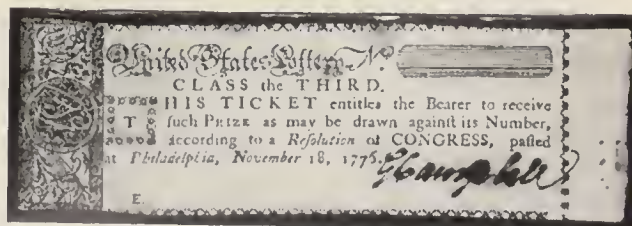 United States Lottery Nº.
CLASS the THIRD.
THIS TICKET entitles the Bearer to receive
ſuch PRIZE as may be drawn againſt its Number,
according to a Reſolution of CONGRESS, paſſed
at Philadelphia, November 18, 1776.
GCampbell
E.